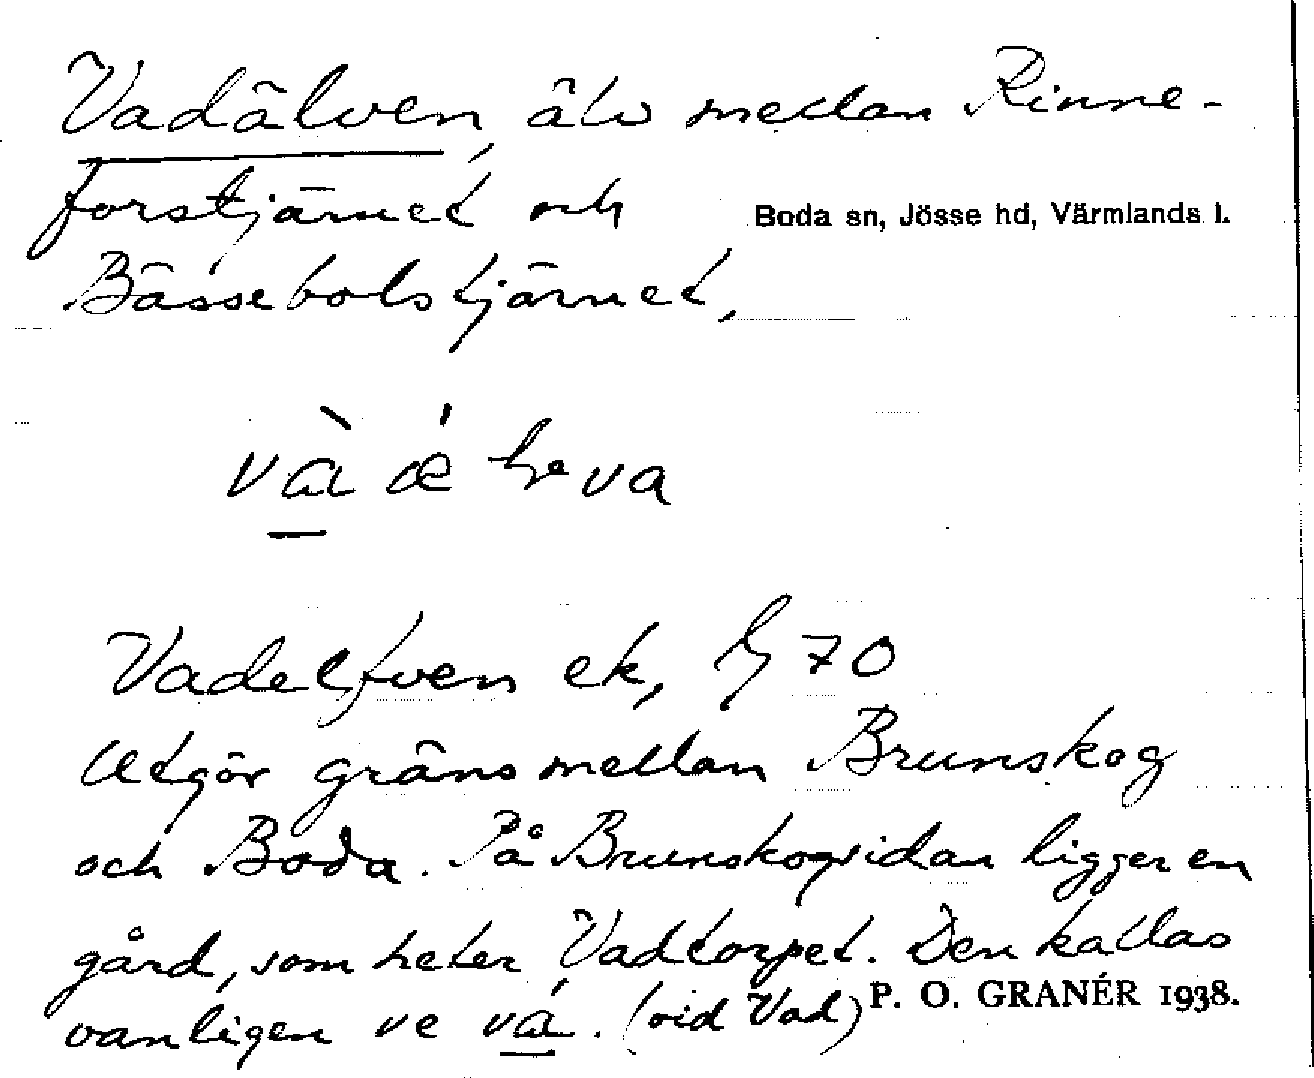 Vadälven, älv mellan Rinne-
forstjärnet och
Boda sn, Jösse hd, Värmlands l.
Bässebolstjärnet,
Vadelfven ek, G 70
Utgör gräns mellan Brunskog
och Boda. På Brunskogsidan ligger en
gård, som heter Vadtorpet. Den kallas
vanligen ve vá. (vid Vad)
P. O. GRANÉR 1938.